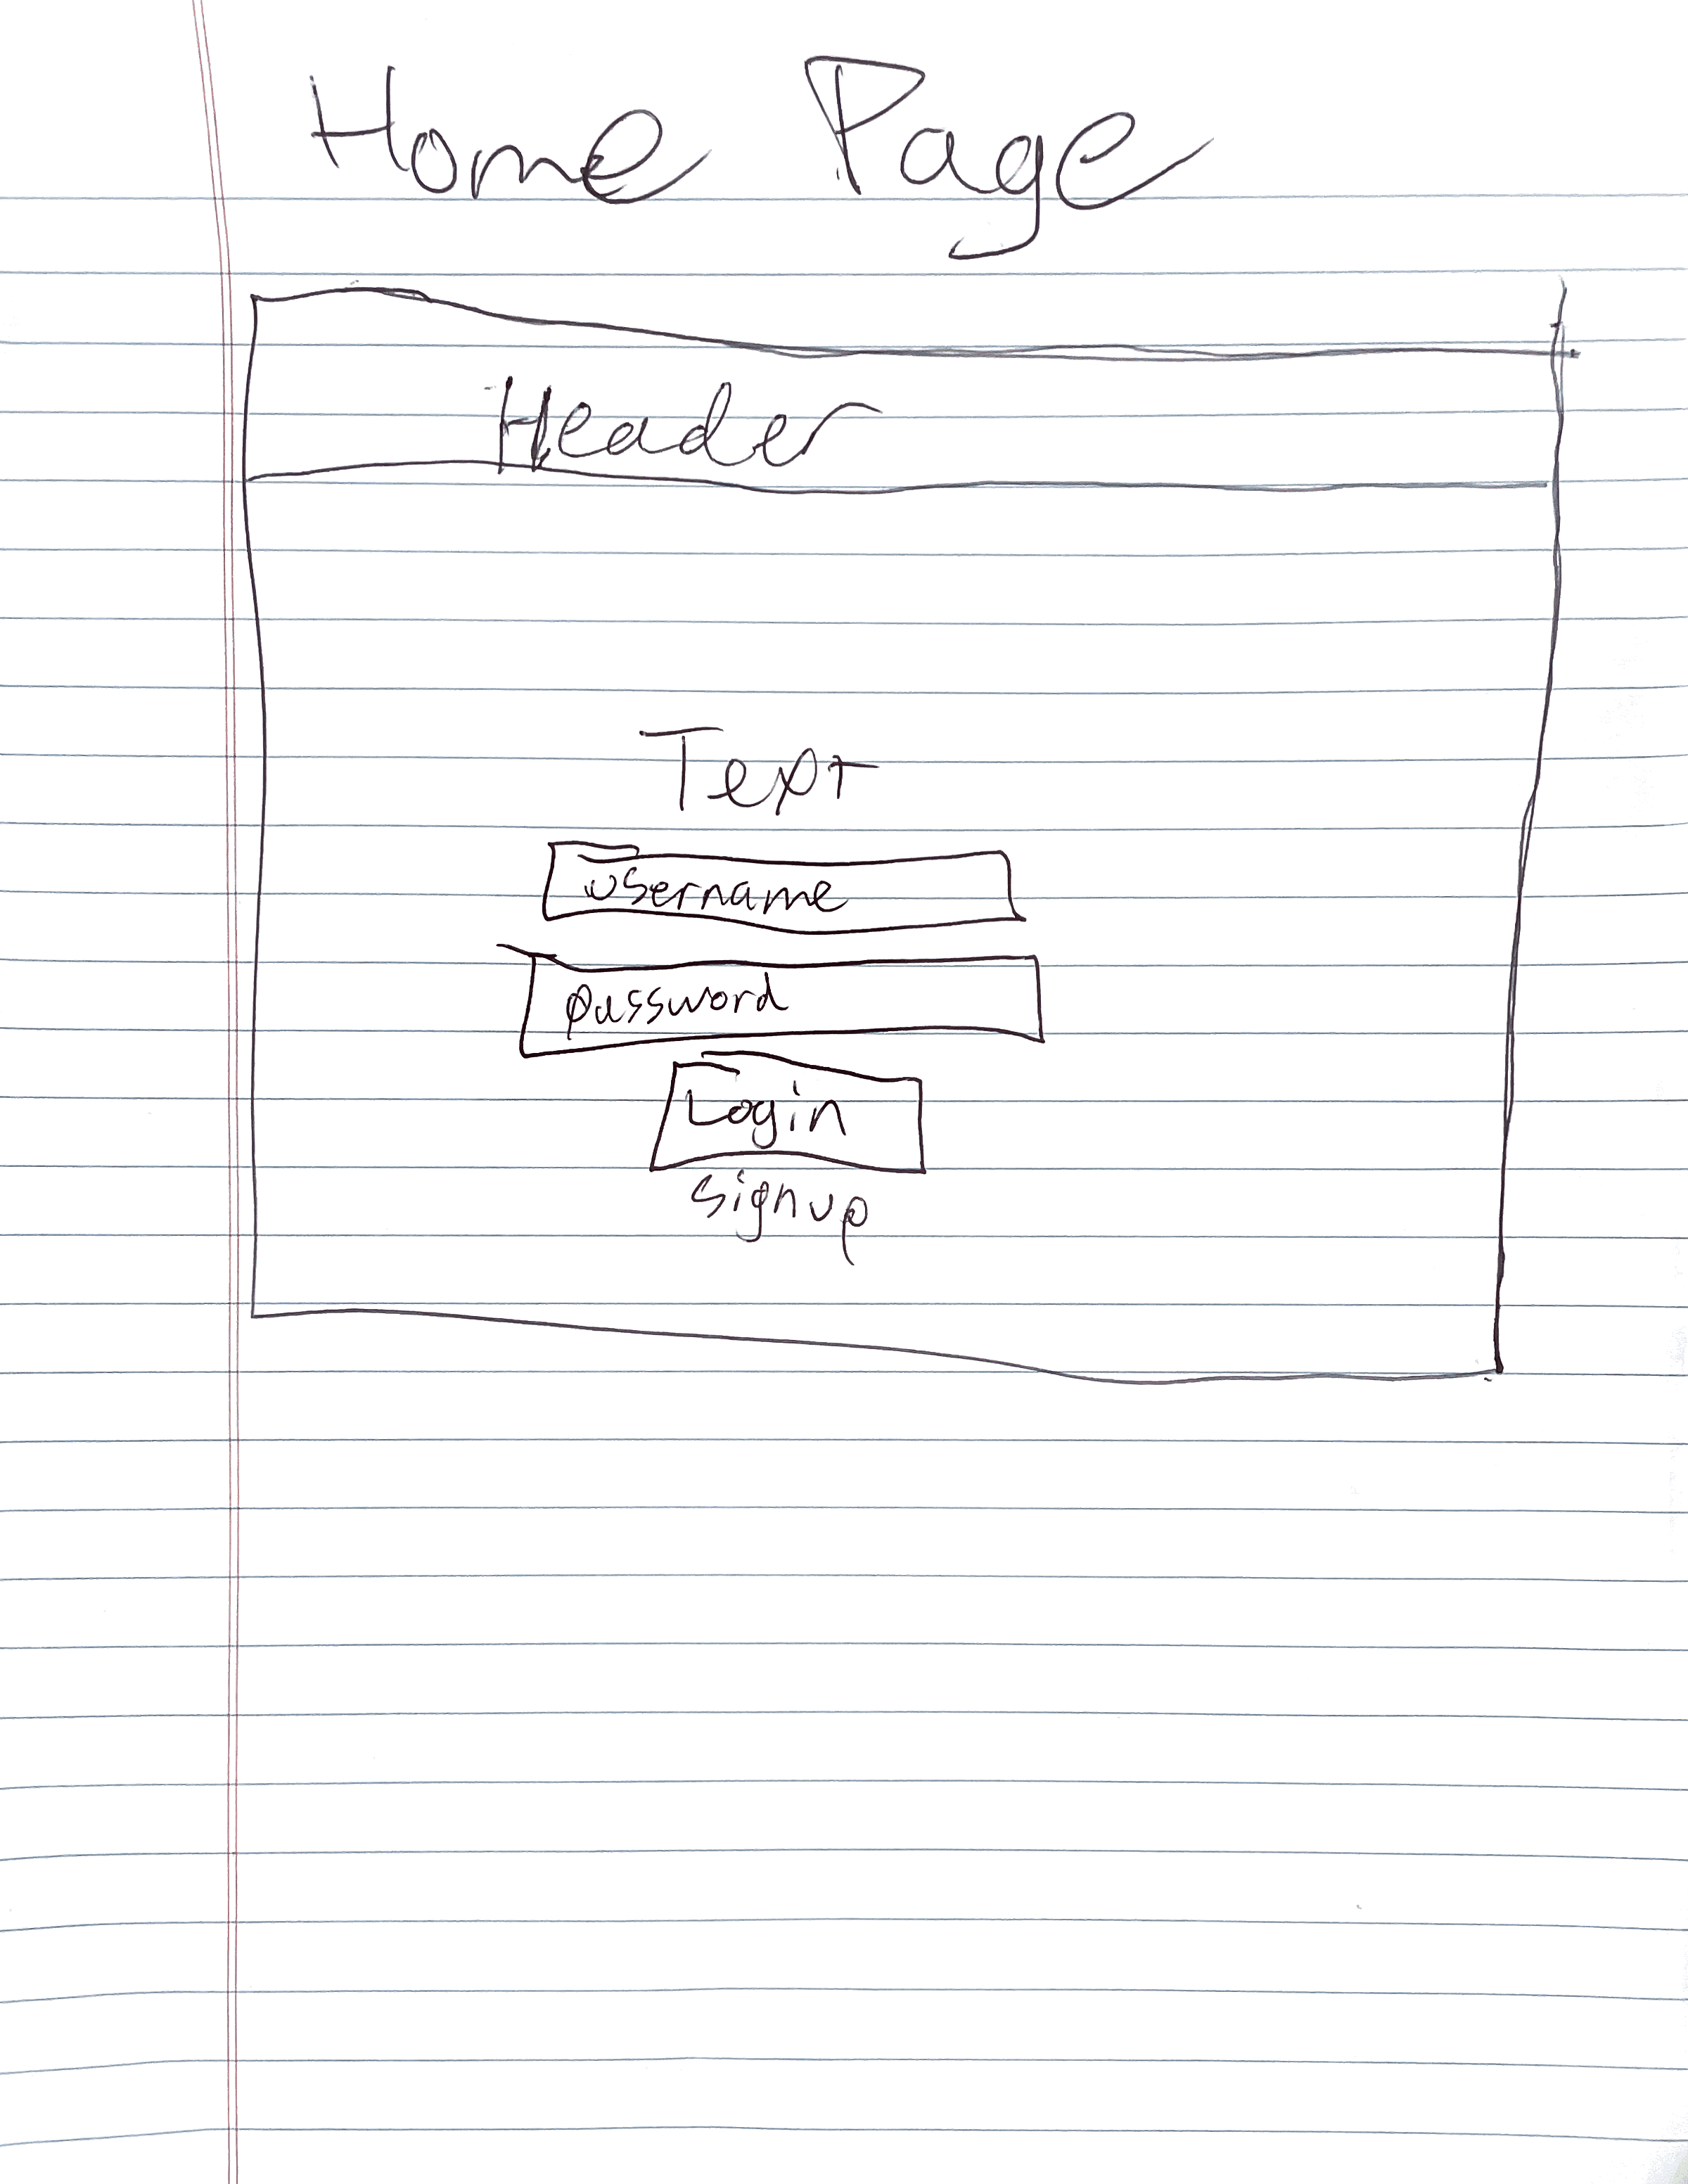 Home Page
Header
Text
username
password
Login
signup